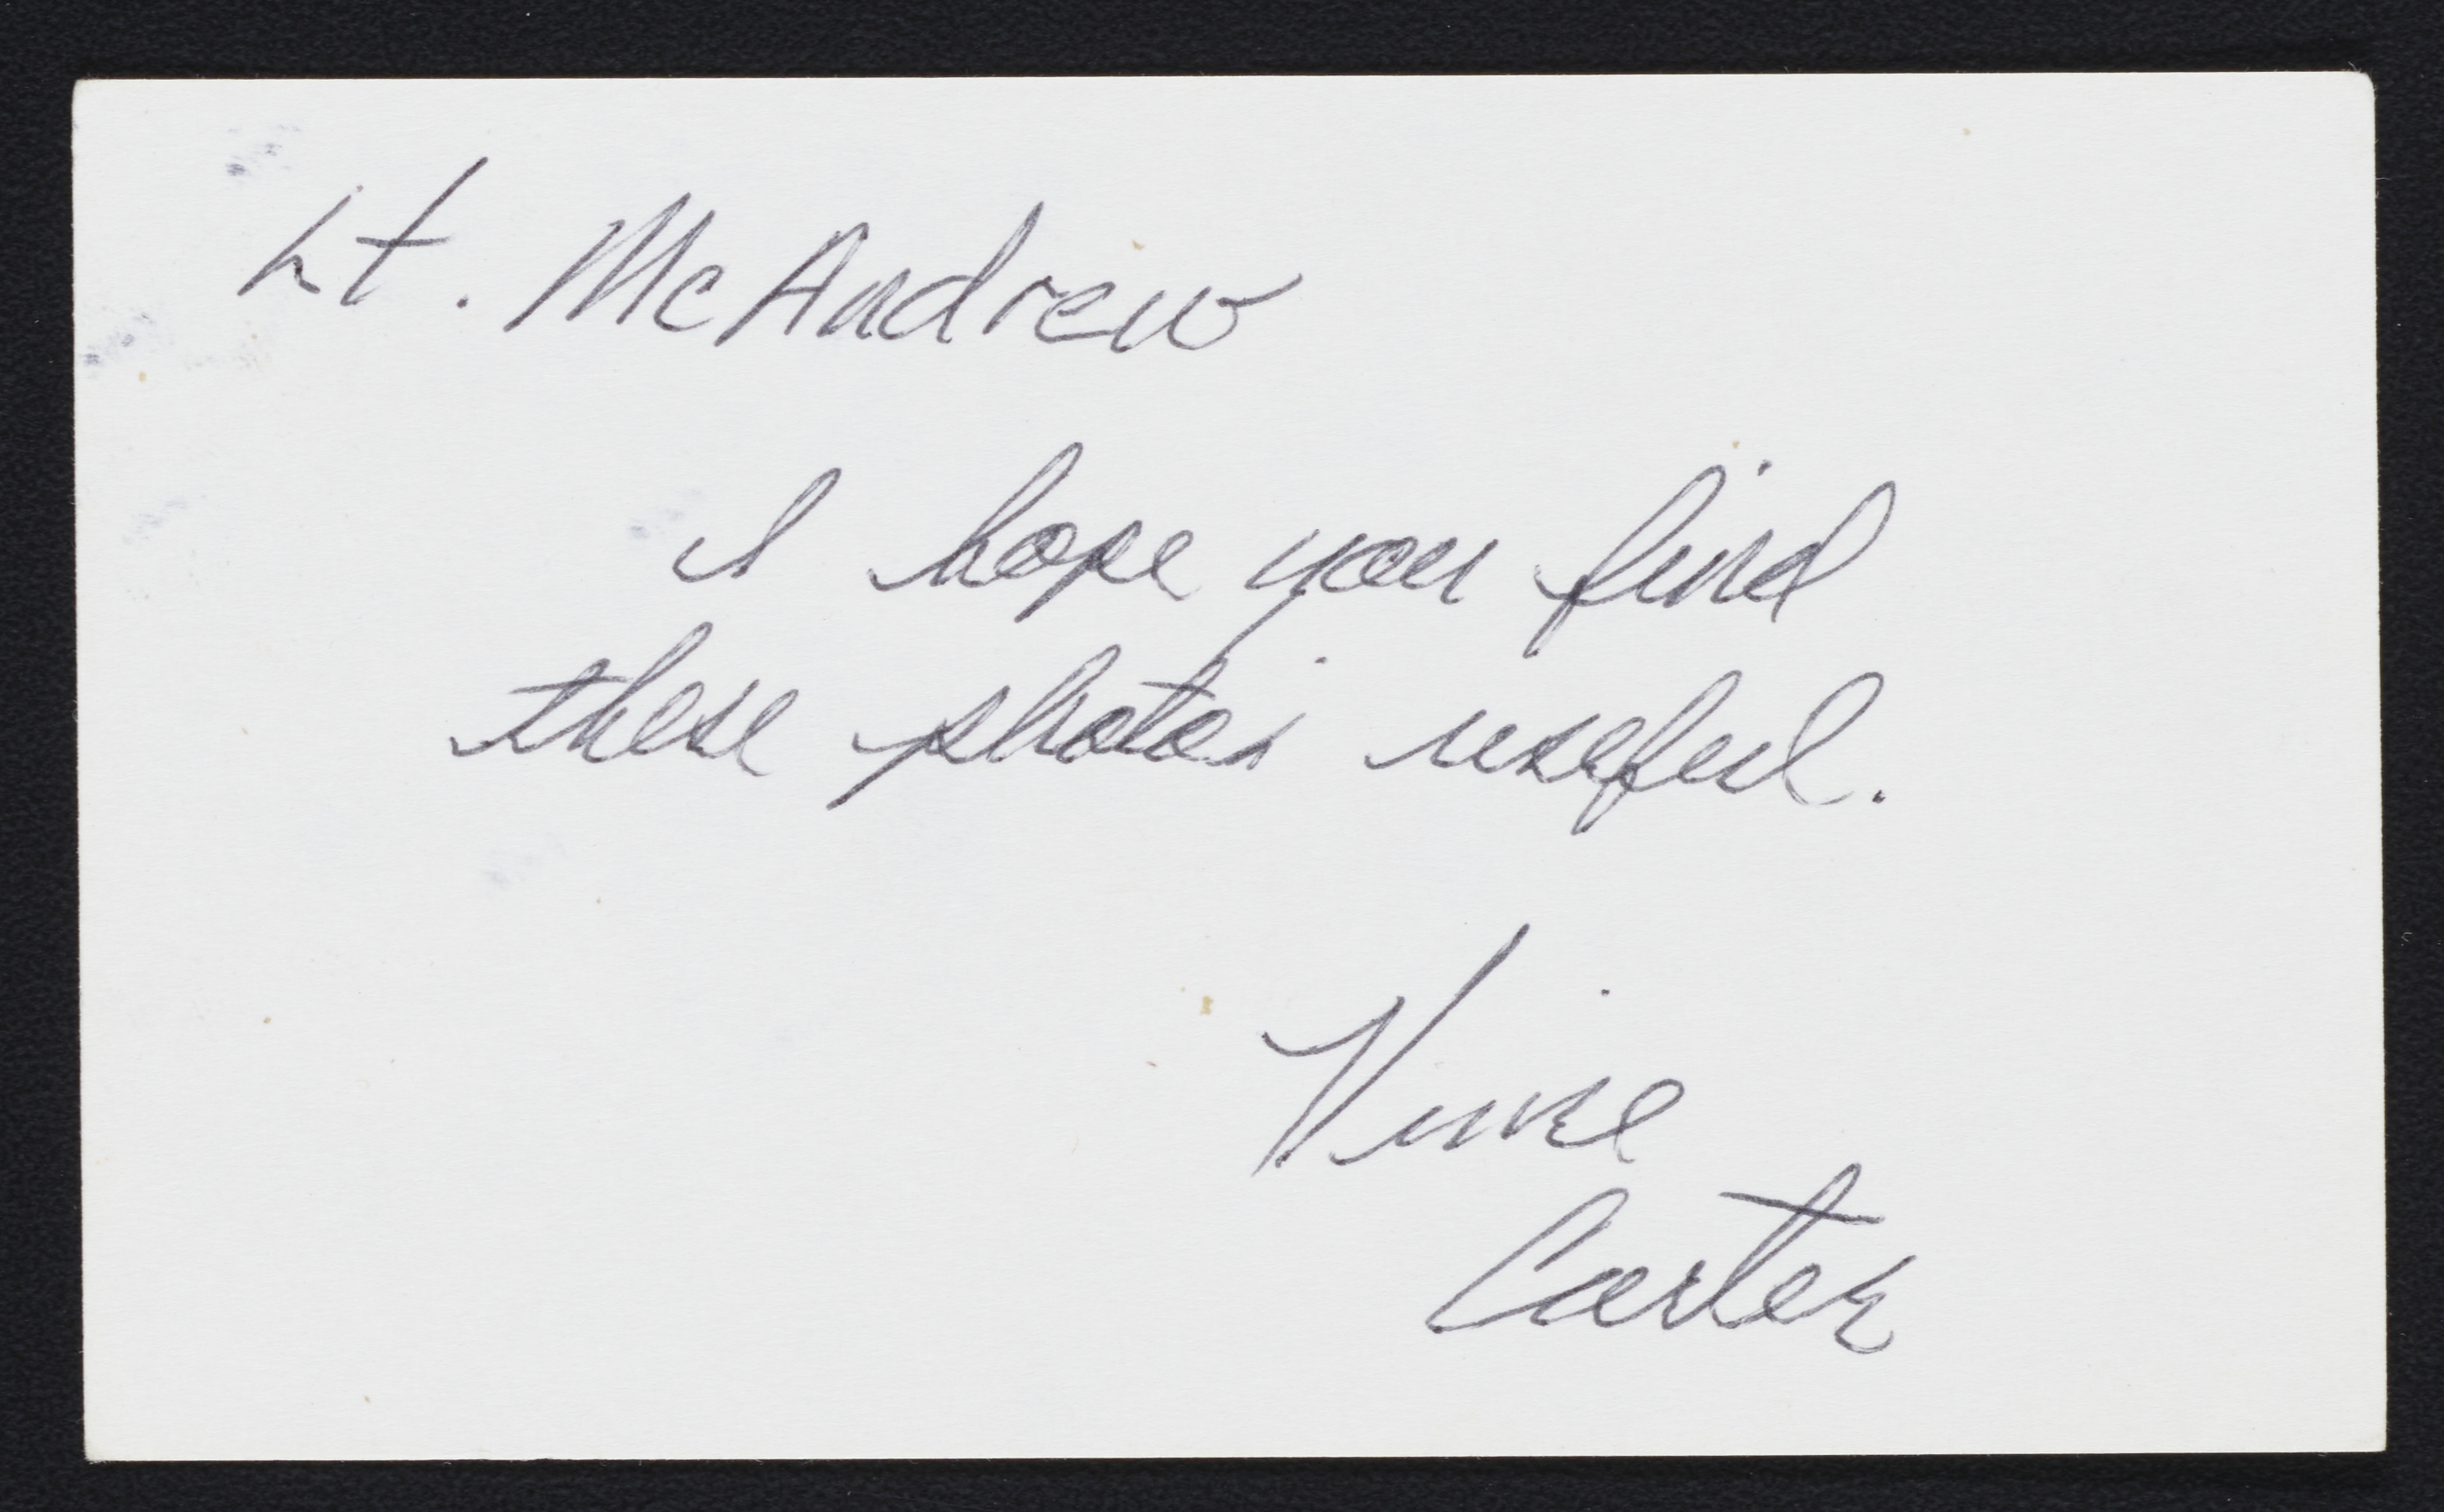 Lt. McAndrew
I hope you find
these photos useful.
Vince
Carter